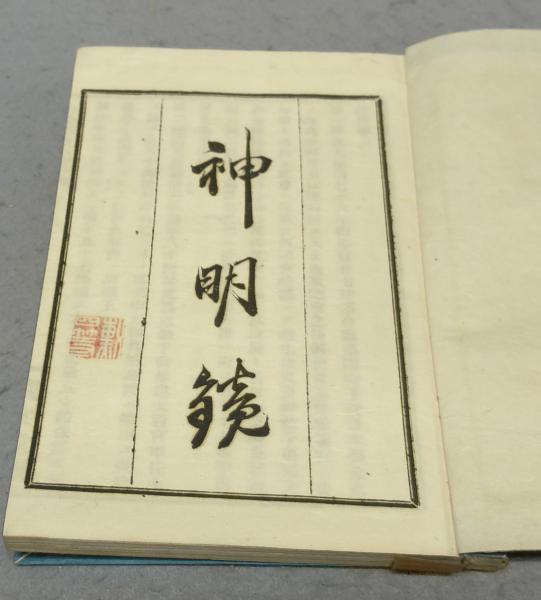 神明鏡